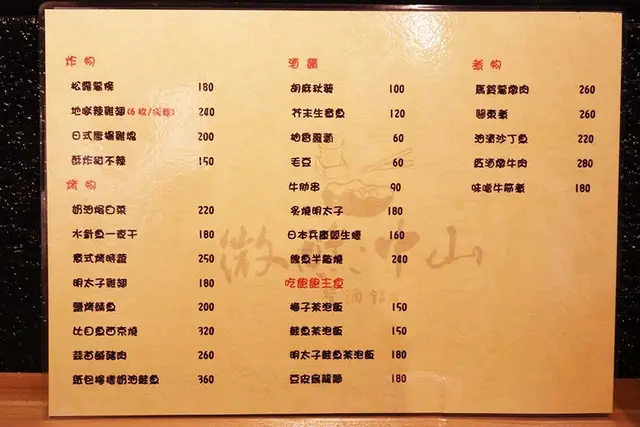 炸物
松露薯條 180
地獄辣雞翅(6枚/ 240
日式唐揚雞塊 200
酥炸甜不辣 150
烤物
奶油焗白菜 220
水針魚一夜干 180
義式烤時蔬 250
明太子雞翅 180
鹽烤鯖魚 200
比目魚西京燒 320
蒜苗鹹豬肉 260
紙包檸檬奶油鮭魚 360
酒餚
胡麻秋葵 100
芥末生章魚 120
柚香蘿蔔 60
毛豆 60
牛肋串 90
炙燒明太子 180
日本兵庫縣生蠔 160
鯷魚半飯燒 240
吃飽飽主食
梅子茶泡飯 150
鮭魚茶泡飯 150
明太子鮭魚茶泡飯 180
豆皮烏龍麵 180
煮物
馬鈴薯燉肉 260
關東煮 260
油漬沙丁魚 220
紅酒燉牛肉 280
味噌牛筋煮 180
微醺沖山
居酒館